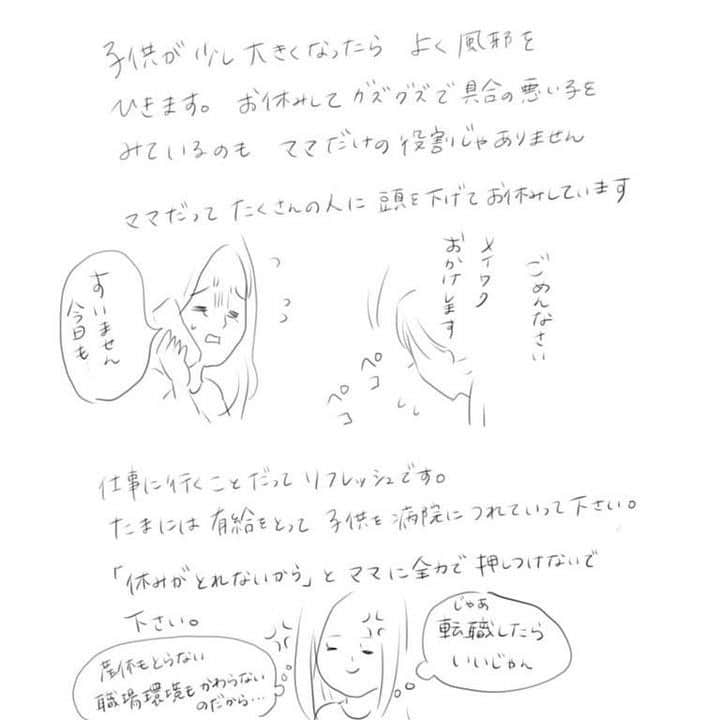 子供が少し大きくなったら よく風邪を
ひきます。お休みして グズグズで具合の悪い子を
みているのも ママだけの役割じゃありません
ママだって たくさんの人に 頭を下げて お休みしています
すいません
今日も
ごめんなさい
メイワク
おかけします
ペコ
ペコ
仕事に行くことだって リフレッシュです。
たまには 有給をとって 子供を 病院に つれていって下さい。
「休みがとれないから」と ママに全力で 押しつけないで
下さい。
じゃあ
転職したら
いいじゃん
産休もとらない
職場環境もかわらない
のだから…